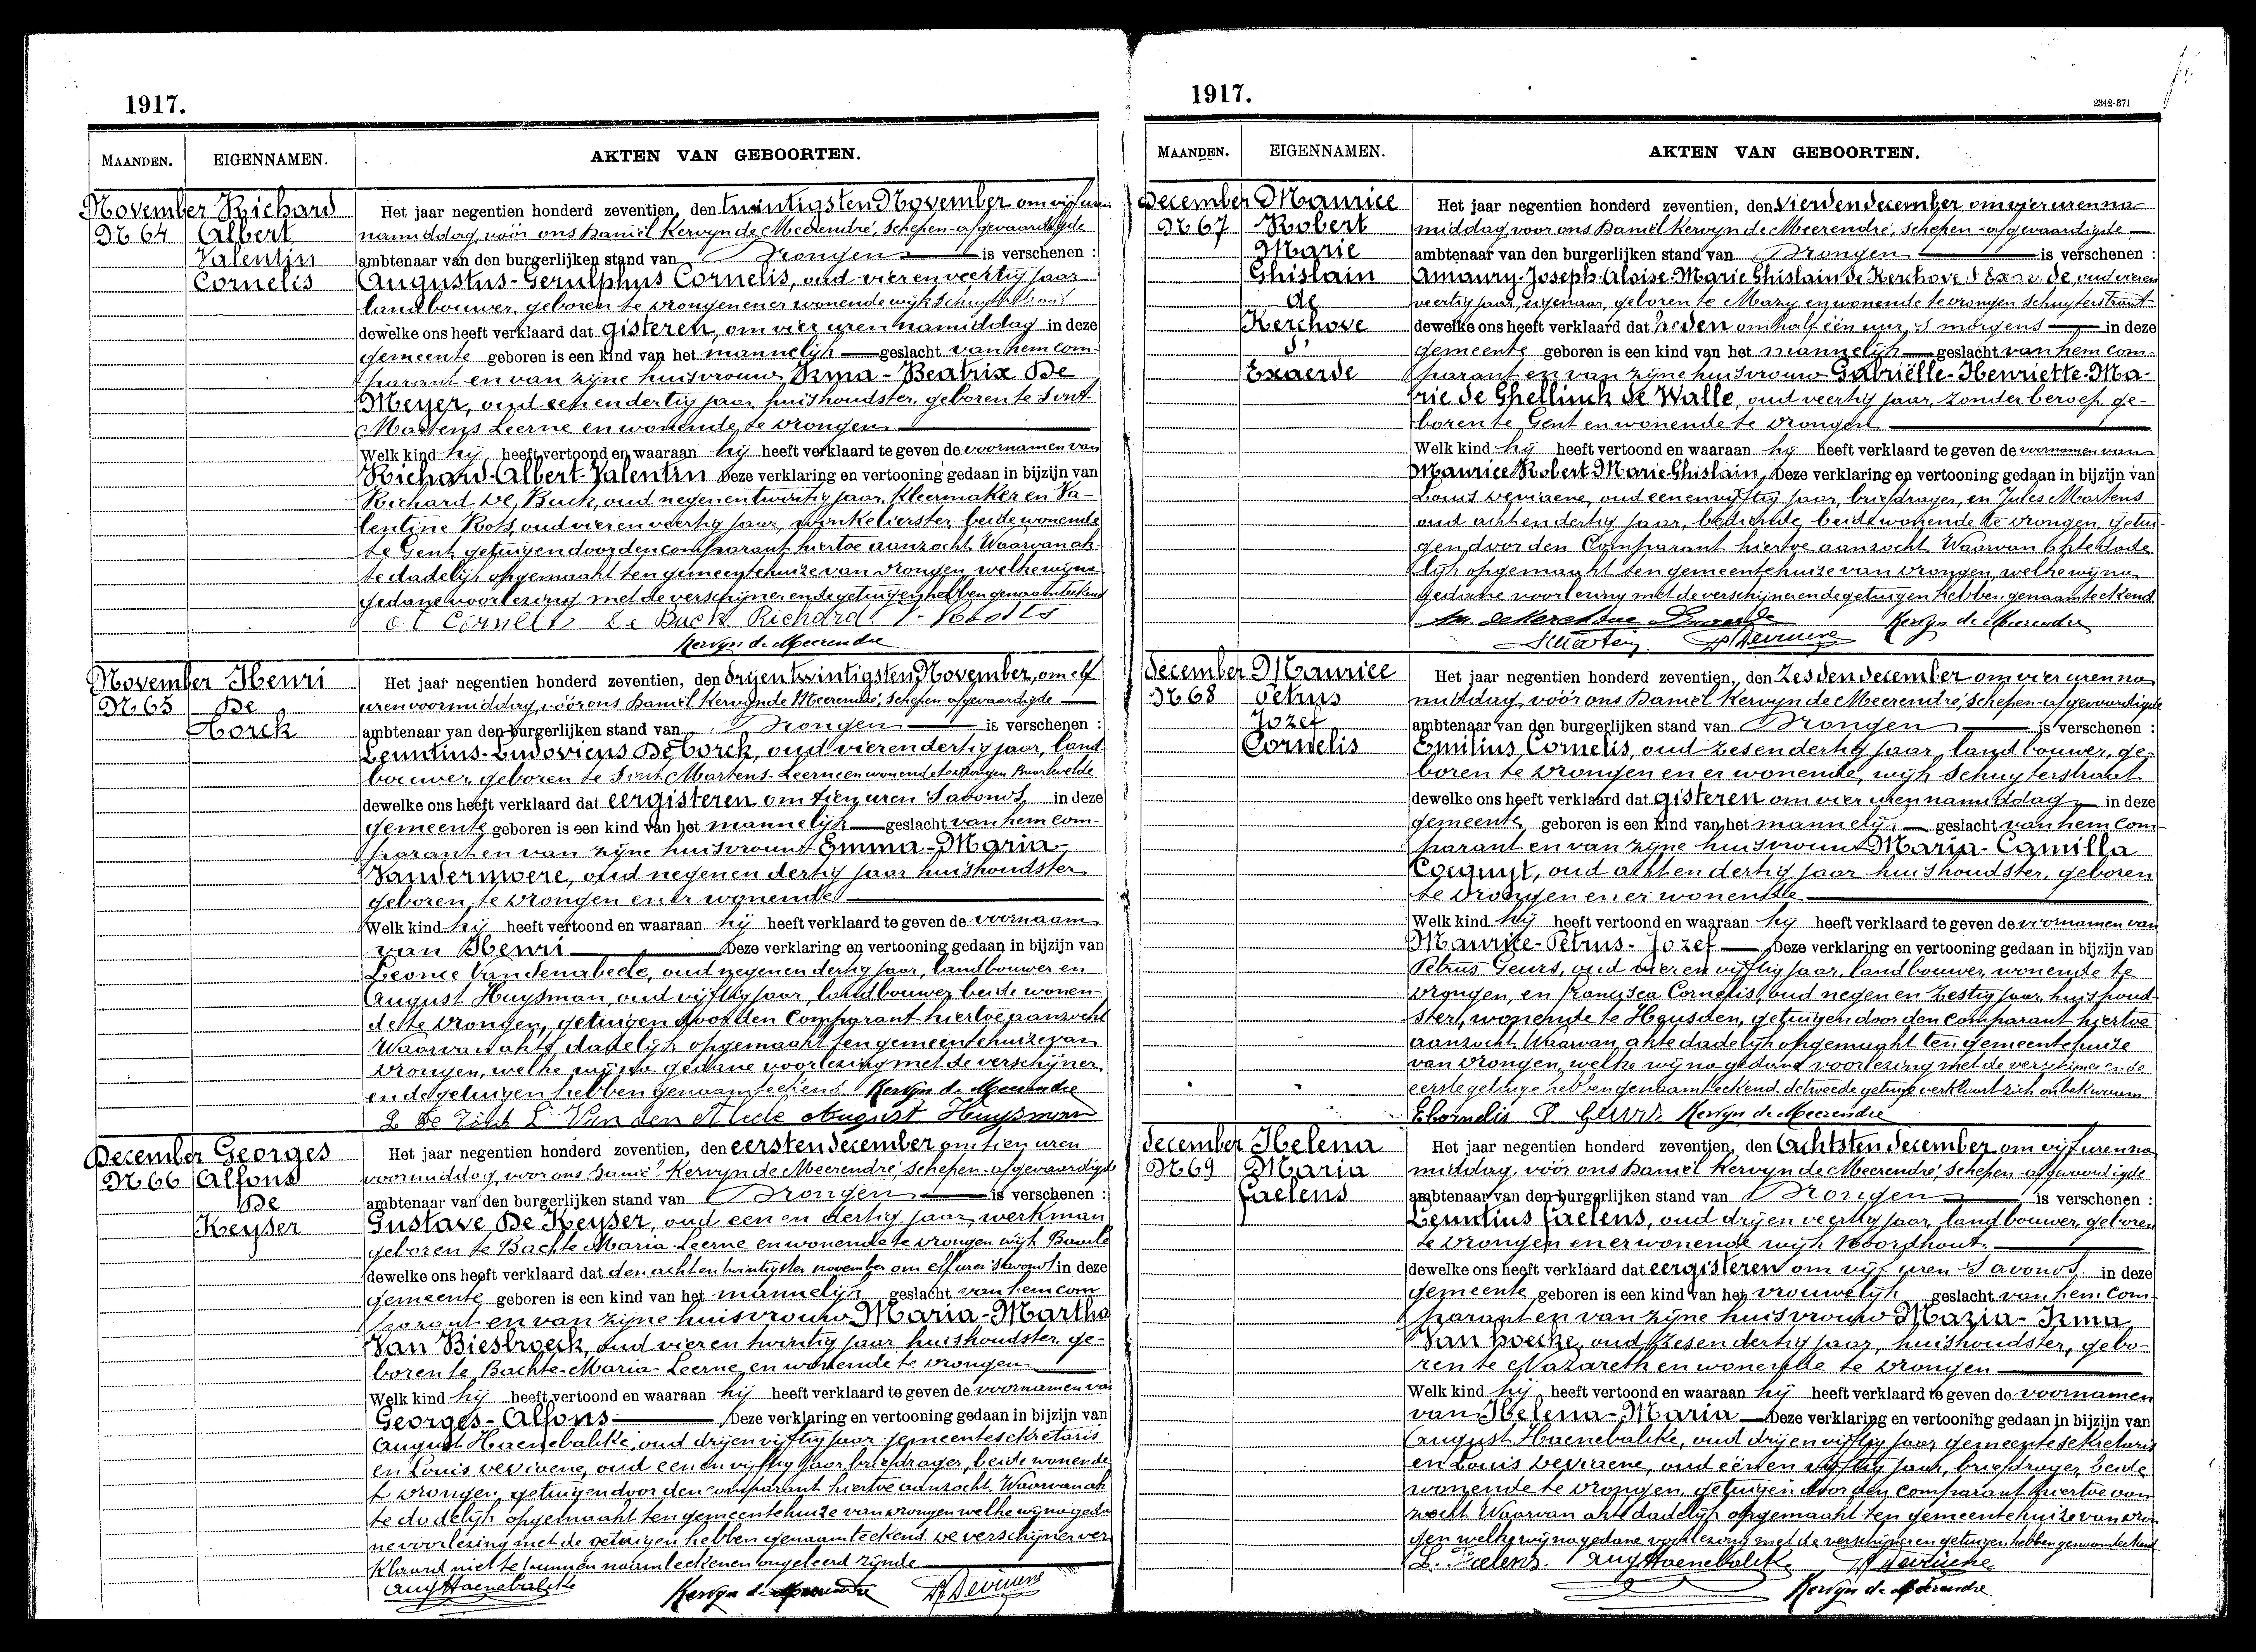 1917.
MAANDEN. EIGENNAMEN. AKTEN VAN GEBOORTEN.
November Richard Het jaar negentien honderd zeventien, den twintigsten November om vijf uren
N 64 Albert namiddag, vóór ons Daniël Kervyn de Meerendré, schepen-afgevaardigde
Valentin ambtenaar van den burgerlijken stand van Drongen is verschenen :
Cornelis Augustus-Gerulphus Cornelis, oud vier en veertig jaar
landbouwer, geboren te Drongen en er wonende wijk
dewelke ons heeft verklaard dat gisteren, om vier uren namiddag in deze
gemeente geboren is een kind van het mannelijk geslacht van hem com-
parant en van zijne huisvrouw Irma-Beatrix De
Meyer, oud een en dertig jaar, huishoudster, geboren te Sint
Martens Leerne en wonende te Drongen
Welk kind hij heeft vertoond en waaraan hij heeft verklaard te geven de voornamen van
Richard-Albert-Valentin Deze verklaring en vertooning gedaan in bijzijn van
Richard De Buck, oud negen en twintig jaar, kleermaker en Va-
lentine Rots, oud vier en veertig jaar, winkelierster, beide wonende
te Gent, getuigen door den comparant hiertoe aanzocht. Waarvan ak-
te dadelijk opgemaakt ten gemeentehuize van Drongen, welke wij na
gedane voorlezing met de verschijner en de getuigen hebben genaamteekend
De Buck Richard
Kervyn de Meerendre
November Henri Het jaar negentien honderd zeventien, den drijentwintigsten November, om elf
N 65 De uren voormiddag, vóór ons Daniël Kervyn de Meerendré, schepen-afgevaardigde
Borck ambtenaar van den burgerlijken stand van Drongen is verschenen :
Leuntius-Ludovicus De Borck, oud vier en dertig jaar, land-
bouwer, geboren te Sint Martens-Leerne en wonende te Drongen Baarlevelde
dewelke ons heeft verklaard dat eergisteren om tien uren 's avonds in deze
gemeente geboren is een kind van het mannelijk geslacht van hem com-
parant en van zijne huisvrouw Emma-Maria
Vandermoere, oud negen en dertig jaar huishoudster
geboren te Drongen en er wonende
Welk kind hij heeft vertoond en waaraan hij heeft verklaard te geven de voornaam
van Henri Deze verklaring en vertooning gedaan in bijzijn van
Leonie Vandenabeele, oud negen en dertig jaar, landbouwer en
August Huysman, oud vijftig jaar, landbouwer beide wonen-
de te Drongen, getuigen door den comparant hiertoe aanzocht
Waarvan akte dadelijk opgemaakt ten gemeentehuize van
Drongen, welke wij na gedane voorlezing met de verschijner
en de getuigen hebben genaamteekend Kervyn de Meerendre
L Van den Abeele August Huysman
December Georges Het jaar negentien honderd zeventien, den eersten december om tien uren
N 66 Alfons voormiddag, voor ons Daniël Kervyn de Meerendré, schepen-afgevaardigde
De ambtenaar van den burgerlijken stand van Drongen is verschenen :
Keyser Gustave De Keyser, oud een en dertig jaar, werkman
geboren te Bachte Maria-Leerne en wonende te Drongen wijk Baarle
dewelke ons heeft verklaard dat den achtentwintigsten november om elf uren 's avonds in deze
gemeente geboren is een kind van het mannelijk geslacht van hem com
parant en van zijne huisvrouw Maria-Martha
Van Biesbroeck, oud vier en twintig jaar huishoudster, ge-
boren te Bachte-Maria-Leerne, en wonende te Drongen
Welk kind hij heeft vertoond en waaraan hij heeft verklaard te geven de voornamen van
Georges-Alfons Deze verklaring en vertooning gedaan in bijzijn van
August Haenebalcke, oud drijenvijftig jaar gemeentesekretaris
en Louis Deviaene, oud een en vijftig jaar, briefdrager, beide wonende
te Drongen, getuigen door den comparant hiertoe aanzocht. Waarvan ak
te dadelijk opgemaakt ten gemeentehuize van Drongen welke wij na geda
ne voorlezing met de getuigen hebben genaamteekend. De verschijner ver
klaard niet te kunnen naamteekenen ongeleerd zijnde
Aug Haenebalcke Kervyn de Meerendre
1917.
2342-371
MAANDEN. EIGENNAMEN. AKTEN VAN GEBOORTEN.
December Maurice Het jaar negentien honderd zeventien, den vierden december om vier uren na
N 67 Robert middag, voor ons Daniël Kervyn de Meerendré, schepen-afgevaardigde
Marie ambtenaar van den burgerlijken stand van Drongen is verschenen :
Ghislain Amaury-Joseph-Aloise-Marie Ghislain de Kerchove d'Exaerde, oud vieren
de veertig jaar, eigenaar, geboren te Mazy en wonende te Drongen Schuyterstraat
Kerchove dewelke ons heeft verklaard dat heden om half één uur 's morgens in deze
d' gemeente geboren is een kind van het mannelijk geslacht van hem com-
Exaerde parant en van zijne huisvrouw Gabriëlle-Henriette-Ma-
rie de Ghellinck de Walle, oud veertig jaar, zonder beroep ge-
boren te Gent en wonende te Drongen
Welk kind hij heeft vertoond en waaraan hij heeft verklaard te geven de voornamen van
Maurice Robert Marie Ghislain, Deze verklaring en vertooning gedaan in bijzijn van
Louis Deviaene, oud eenenvijftig jaar, briefdrager, en Jules Martens
oud acht en dertig jaar, bediende, beide wonende te Drongen, getui-
gen door den Comparant hiertoe aanzocht. Waarvan akte dade
lijk opgemaakt ten gemeentehuize van Drongen, welke wij na
gedane voorlezing met de verschijner en de getuigen hebben genaamteekend
Kervyn de Meerendre
December Maurice Het jaar negentien honderd zeventien, den Zesden december om vier uren na
N 68 Petrus middag, vóór ons Daniël Kervyn de Meerendré, schepen-afgevaardigde
Jozef ambtenaar van den burgerlijken stand van Drongen is verschenen :
Cornelis Emilius Cornelis, oud zes en dertig jaar, landbouwer, ge-
boren te Drongen en er wonende, wijk Schuyterstraat
dewelke ons heeft verklaard dat gisteren om vier uren namiddag in deze
gemeente geboren is een kind van het mannelijk geslacht van hem com-
parant en van zijne huisvrouw Maria-Camilla
Cocquyt, oud acht en dertig jaar huishoudster, geboren
te Drongen en er wonende
Welk kind hij heeft vertoond en waaraan hij heeft verklaard te geven de voornamen van
Maurice-Petrus-Jozef Deze verklaring en vertooning gedaan in bijzijn van
Petrus Geurs, oud vier en vijftig jaar, landbouwer, wonende te
Drongen, en Francisca Cornelis, oud negen en zestig jaar, huishoud-
ster, wonende te Heusden, getuigen door den comparant hiertoe
aanzocht. Waarvan akte dadelijk opgemaakt ten gemeentehuize
van Drongen, welke wij na gedane voorlezing met de verschijner en de
eerste getuige hebben genaamteekend, de tweede getuige verklaart zich onbekwaam
E Cornelis P Geurs Kervyn de Meerendre
December Helena Het jaar negentien honderd zeventien, den Achtsten december, om vijf uren na
N 69 Maria middag, vóór ons Daniël Kervyn de Meerendré, schepen-afgevaardigde
Faelens ambtenaar van den burgerlijken stand van Drongen is verschenen :
Leuntius Faelens, oud drij en veertig jaar, landbouwer, geboren
te Drongen en er wonende wijk Noordhout
dewelke ons heeft verklaard dat eergisteren om vijf uren 's avonds in deze
gemeente geboren is een kind van het vrouwelijk geslacht van hem com
parant en van zijne huisvrouw Maria-Irma
Van Hoecke, oud zes en dertig jaar, huishoudster, gebo-
ren te Nazareth en wonende te Drongen
Welk kind hij heeft vertoond en waaraan hij heeft verklaard te geven de voornamen
van Helena-Maria Deze verklaring en vertooning gedaan in bijzijn van
August Haenebalcke, oud drijenvijftig jaar gemeentesekretaris
en Louis Deviaene, oud eén en vijftig jaar, briefdrager, beide
wonende te Drongen, getuigen door den comparant hiertoe aan
zocht. Waarvan akte dadelijk opgemaakt ten gemeentehuize van Dron
gen welke wij na gedane voorlezing met de verschijner en getuigen hebben genaamteekend
L. Faelens. Aug Haenebalcke
Kervyn de Meerendre